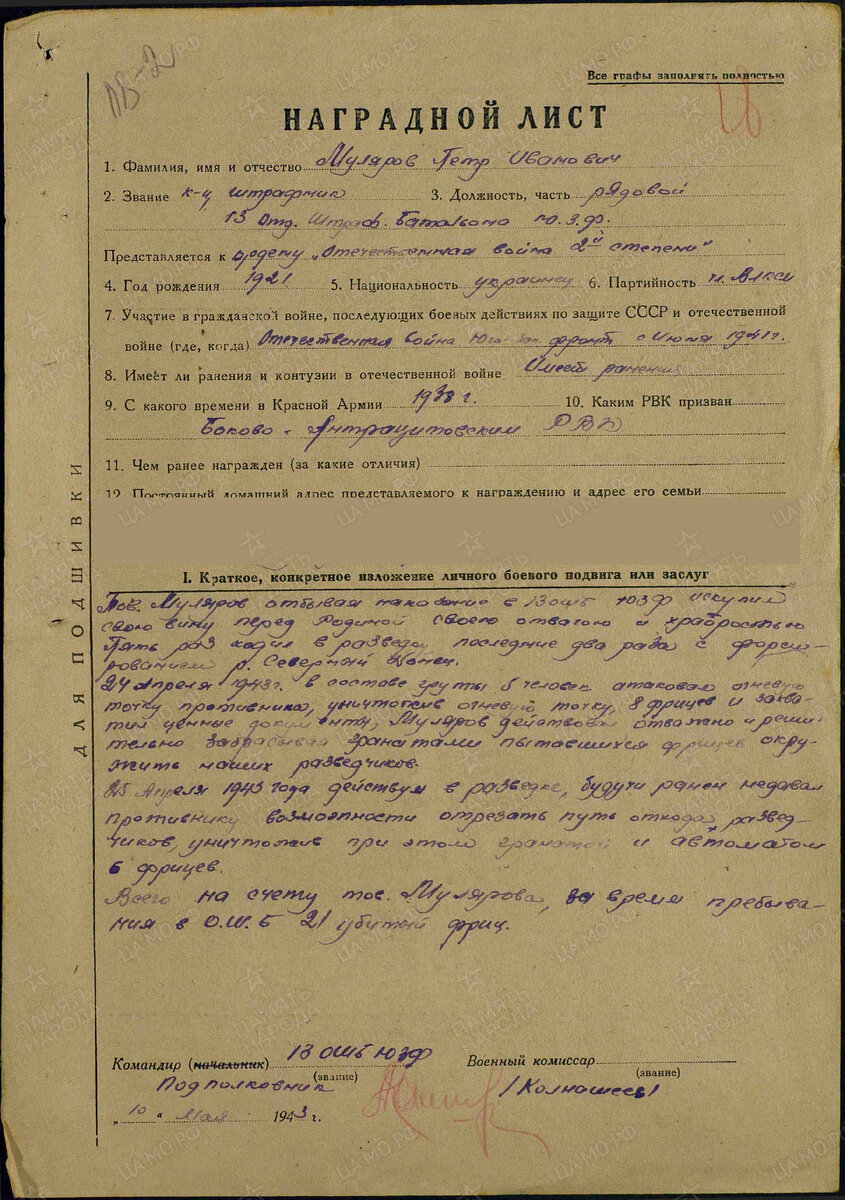 Все графы заполнять полностью
ПВ-2
НАГРАДНОЙ ЛИСТ
1. Фамилия, имя и отчество Муляров Петр Иванович
2. Звание к-ц штрафник 3. Должность, часть рядовой
13 Отд. Штраф. Батальона Ю.З.Ф.
Представляется к ордену „Отечественная война 2й степени"
4. Год рождения 1921 5. Национальность украинец 6. Партийность чл. ВЛКСМ
7. Участие в гражданской войне, последующих боевых действиях по защите СССР и отечественной
войне (где, когда) Отечественная война Юго-Зап. фронт с Июня 1941 г.
8. Имеет ли ранения и контузии в отечественной войне Имеет ранения
9. С какого времени в Красной Армии 1938 г. 10. Каким РВК призван
Боково-Антрацитовским РВК
11. Чем ранее награжден (за какие отличия)
12. Постоянный домашний адрес представляемого к награждению и адрес его семьи
ДЛЯ ПОДШИВКИ
I. Краткое, конкретное изложение личного боевого подвига или заслуг
Тов. Муляров отбывая наказание в 13 ошб ЮЗФ искупил
свою вину перед Родиной своего отвагою и храбростью
Пять раз ходил в разведку последние два раза с форси-
рованием р. Северный Донец.
24 Апреля 1943г. в составе групы 5 человек атаковал огневую
точку противника, уничтожив огневую точку, 8 фрицев и захва-
тил ценные документы, Муляров действовал отважно и реши-
тельно забрасывая гранатами пытавшихся фрицев окру-
жить наших разведчиков.
25 Апреля 1943 года действуя в разведке, будучи ранен недавал
противнику возможности отрезать путь отхода развед-
чиков, уничтожив при этом гранатой и автоматом
6 фрицев.
Всего на счету тов. Мулярова, за время пребыва-
ния в О.Ш.Б 21 убитый фриц.
Командир (начальник) 13 ОШБ ЮЗФ Военный комиссар
(звание) (звание)
Подполковник /Колпашев/
„10" мая 1943 г.
ПАМЯТЬ НАРОДА
ЦАМО.РФ